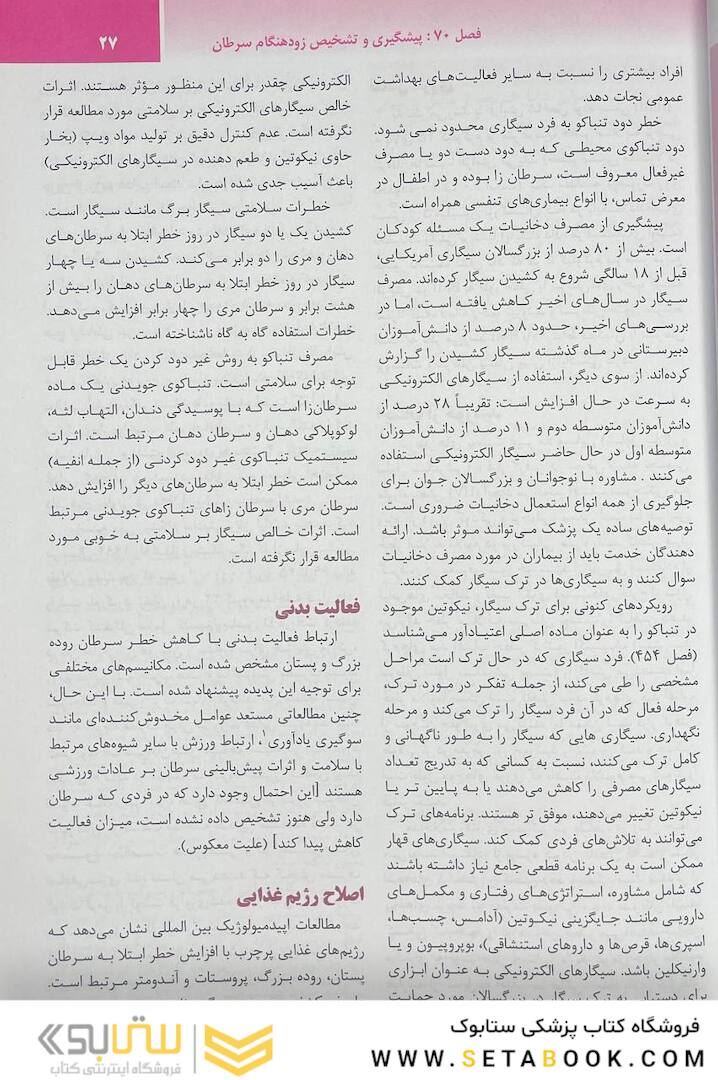 فصل ۷۰: پیشگیری و تشخیص زودهنگام سرطان
۲۷
افراد بیشتری را نسبت به سایر فعالیت‌های بهداشت
عمومی نجات دهد.
خطر دود تنباکو به فرد سیگاری محدود نمی شود.
دود تنباکوی محیطی که به دود دست دو یا مصرف
غیرفعال معروف است، سرطان زا بوده و در اطفال در
معرض تماس، با انواع بیماری‌های تنفسی همراه است.
پیشگیری از مصرف دخانیات یک مسئله کودکان
است. بیش از ۸۰ درصد از بزرگسالان سیگاری آمریکایی،
قبل از ۱۸ سالگی شروع به کشیدن سیگار کرده‌اند. مصرف
سیگار در سال‌های اخیر کاهش یافته است، اما در
بررسی‌های اخیر، حدود ۸ درصد از دانش‌آموزان
دبیرستانی در ماه گذشته سیگار کشیدن را گزارش
کرده‌اند. از سوی دیگر، استفاده از سیگارهای الکترونیکی
به سرعت در حال افزایش است: تقریباً ۲۸ درصد از
دانش‌آموزان متوسطه دوم و ۱۱ درصد از دانش‌آموزان
متوسطه اول در حال حاضر سیگار الکترونیکی استفاده
می‌کنند . مشاوره با نوجوانان و بزرگسالان جوان برای
جلوگیری از همه انواع استعمال دخانیات ضروری است.
توصیه‌های ساده یک پزشک می‌تواند موثر باشد. ارائه
دهندگان خدمت باید از بیماران در مورد مصرف دخانیات
سوال کنند و به سیگاری‌ها در ترک سیگار کمک کنند.
رویکردهای کنونی برای ترک سیگار، نیکوتین موجود
در تنباکو را به عنوان ماده اصلی اعتیادآور می‌شناسد
(فصل ۴۵۴). فرد سیگاری که در حال ترک است مراحل
مشخصی را طی می‌کند، از جمله تفکر در مورد ترک،
مرحله فعال که در آن فرد سیگار را ترک می‌کند و مرحله
نگهداری. سیگاری هایی که سیگار را به طور ناگهانی و
کامل ترک می‌کنند، نسبت به کسانی که به تدریج تعداد
سیگارهای مصرفی را کاهش می‌دهند یا به پایین تر یا
نیکوتین تغییر می‌دهند، موفق تر هستند. برنامه‌های ترک
می‌توانند به تلاش‌های فردی کمک کند. سیگاری‌های قهار
ممکن است به یک برنامه قطعی جامع نیاز داشته باشند
که شامل مشاوره، استراتژی‌های رفتاری و مکمل‌های
دارویی مانند جایگزینی نیکوتین (آدامس، چسب‌ها،
اسپری‌ها، قرص‌ها و داروهای استنشاقی)، بوپروپیون و یا
وارنیکلین باشد. سیگارهای الکترونیکی به عنوان ابزاری
برای دستیابی به ترک سیگار در بزرگسالان مورد حمایت
الکترونیکی چقدر برای این منظور مؤثر هستند. اثرات
خالص سیگارهای الکترونیکی بر سلامتی مورد مطالعه قرار
نگرفته است. عدم کنترل دقیق بر تولید مواد ویپ (بخار
حاوی نیکوتین و طعم دهنده در سیگارهای الکترونیکی)
باعث آسیب جدی شده است.
خطرات سلامتی سیگار برگ مانند سیگار است.
کشیدن یک یا دو سیگار در روز خطر ابتلا به سرطان‌های
دهان و مری را دو برابر می‌کند. کشیدن سه یا چهار
سیگار در روز خطر ابتلا به سرطان‌های دهان را بیش از
هشت برابر و سرطان مری را چهار برابر افزایش می‌دهد.
خطرات استفاده گاه به گاه ناشناخته است.
مصرف تنباکو به روش غیر دود کردن یک خطر قابل
توجه برای سلامتی است. تنباکوی جویدنی یک ماده
سرطان‌زا است که با پوسیدگی دندان، التهاب لثه،
لوکوپلاکی دهان و سرطان دهان مرتبط است. اثرات
سیستمیک تنباکوی غیر دود کردنی (از جمله انفیه)
ممکن است خطر ابتلا به سرطان‌های دیگر را افزایش دهد.
سرطان مری با سرطان زاهای تنباکوی جویدنی مرتبط
است. اثرات خالص سیگار بر سلامتی به خوبی مورد
مطالعه قرار نگرفته است.
فعالیت بدنی
ارتباط فعالیت بدنی با کاهش خطر سرطان روده
بزرگ و پستان مشخص شده است. مکانیسم‌های مختلفی
برای توجیه این پدیده پیشنهاد شده است. با این حال،
چنین مطالعاتی مستعد عوامل مخدوش‌کننده‌ای مانند
سوگیری یادآوری۱، ارتباط ورزش با سایر شیوه‌های مرتبط
با سلامت و اثرات پیش‌بالینی سرطان بر عادات ورزشی
هستند [این احتمال وجود دارد که در فردی که سرطان
دارد ولی هنوز تشخیص داده نشده است، میزان فعالیت
کاهش پیدا کند] (علیت معکوس).
اصلاح رژیم غذایی
مطالعات اپیدمیولوژیک بین المللی نشان می‌دهد که
رژیم‌های غذایی پرچرب با افزایش خطر ابتلا به سرطان
پستان، روده بزرگ، پروستات و آندومتر مرتبط است.
فروشگاه کتاب پزشکی ستابوک
WWW.SETABOOK.COM
ستابوک
فروشگاه اینترنتی کتاب